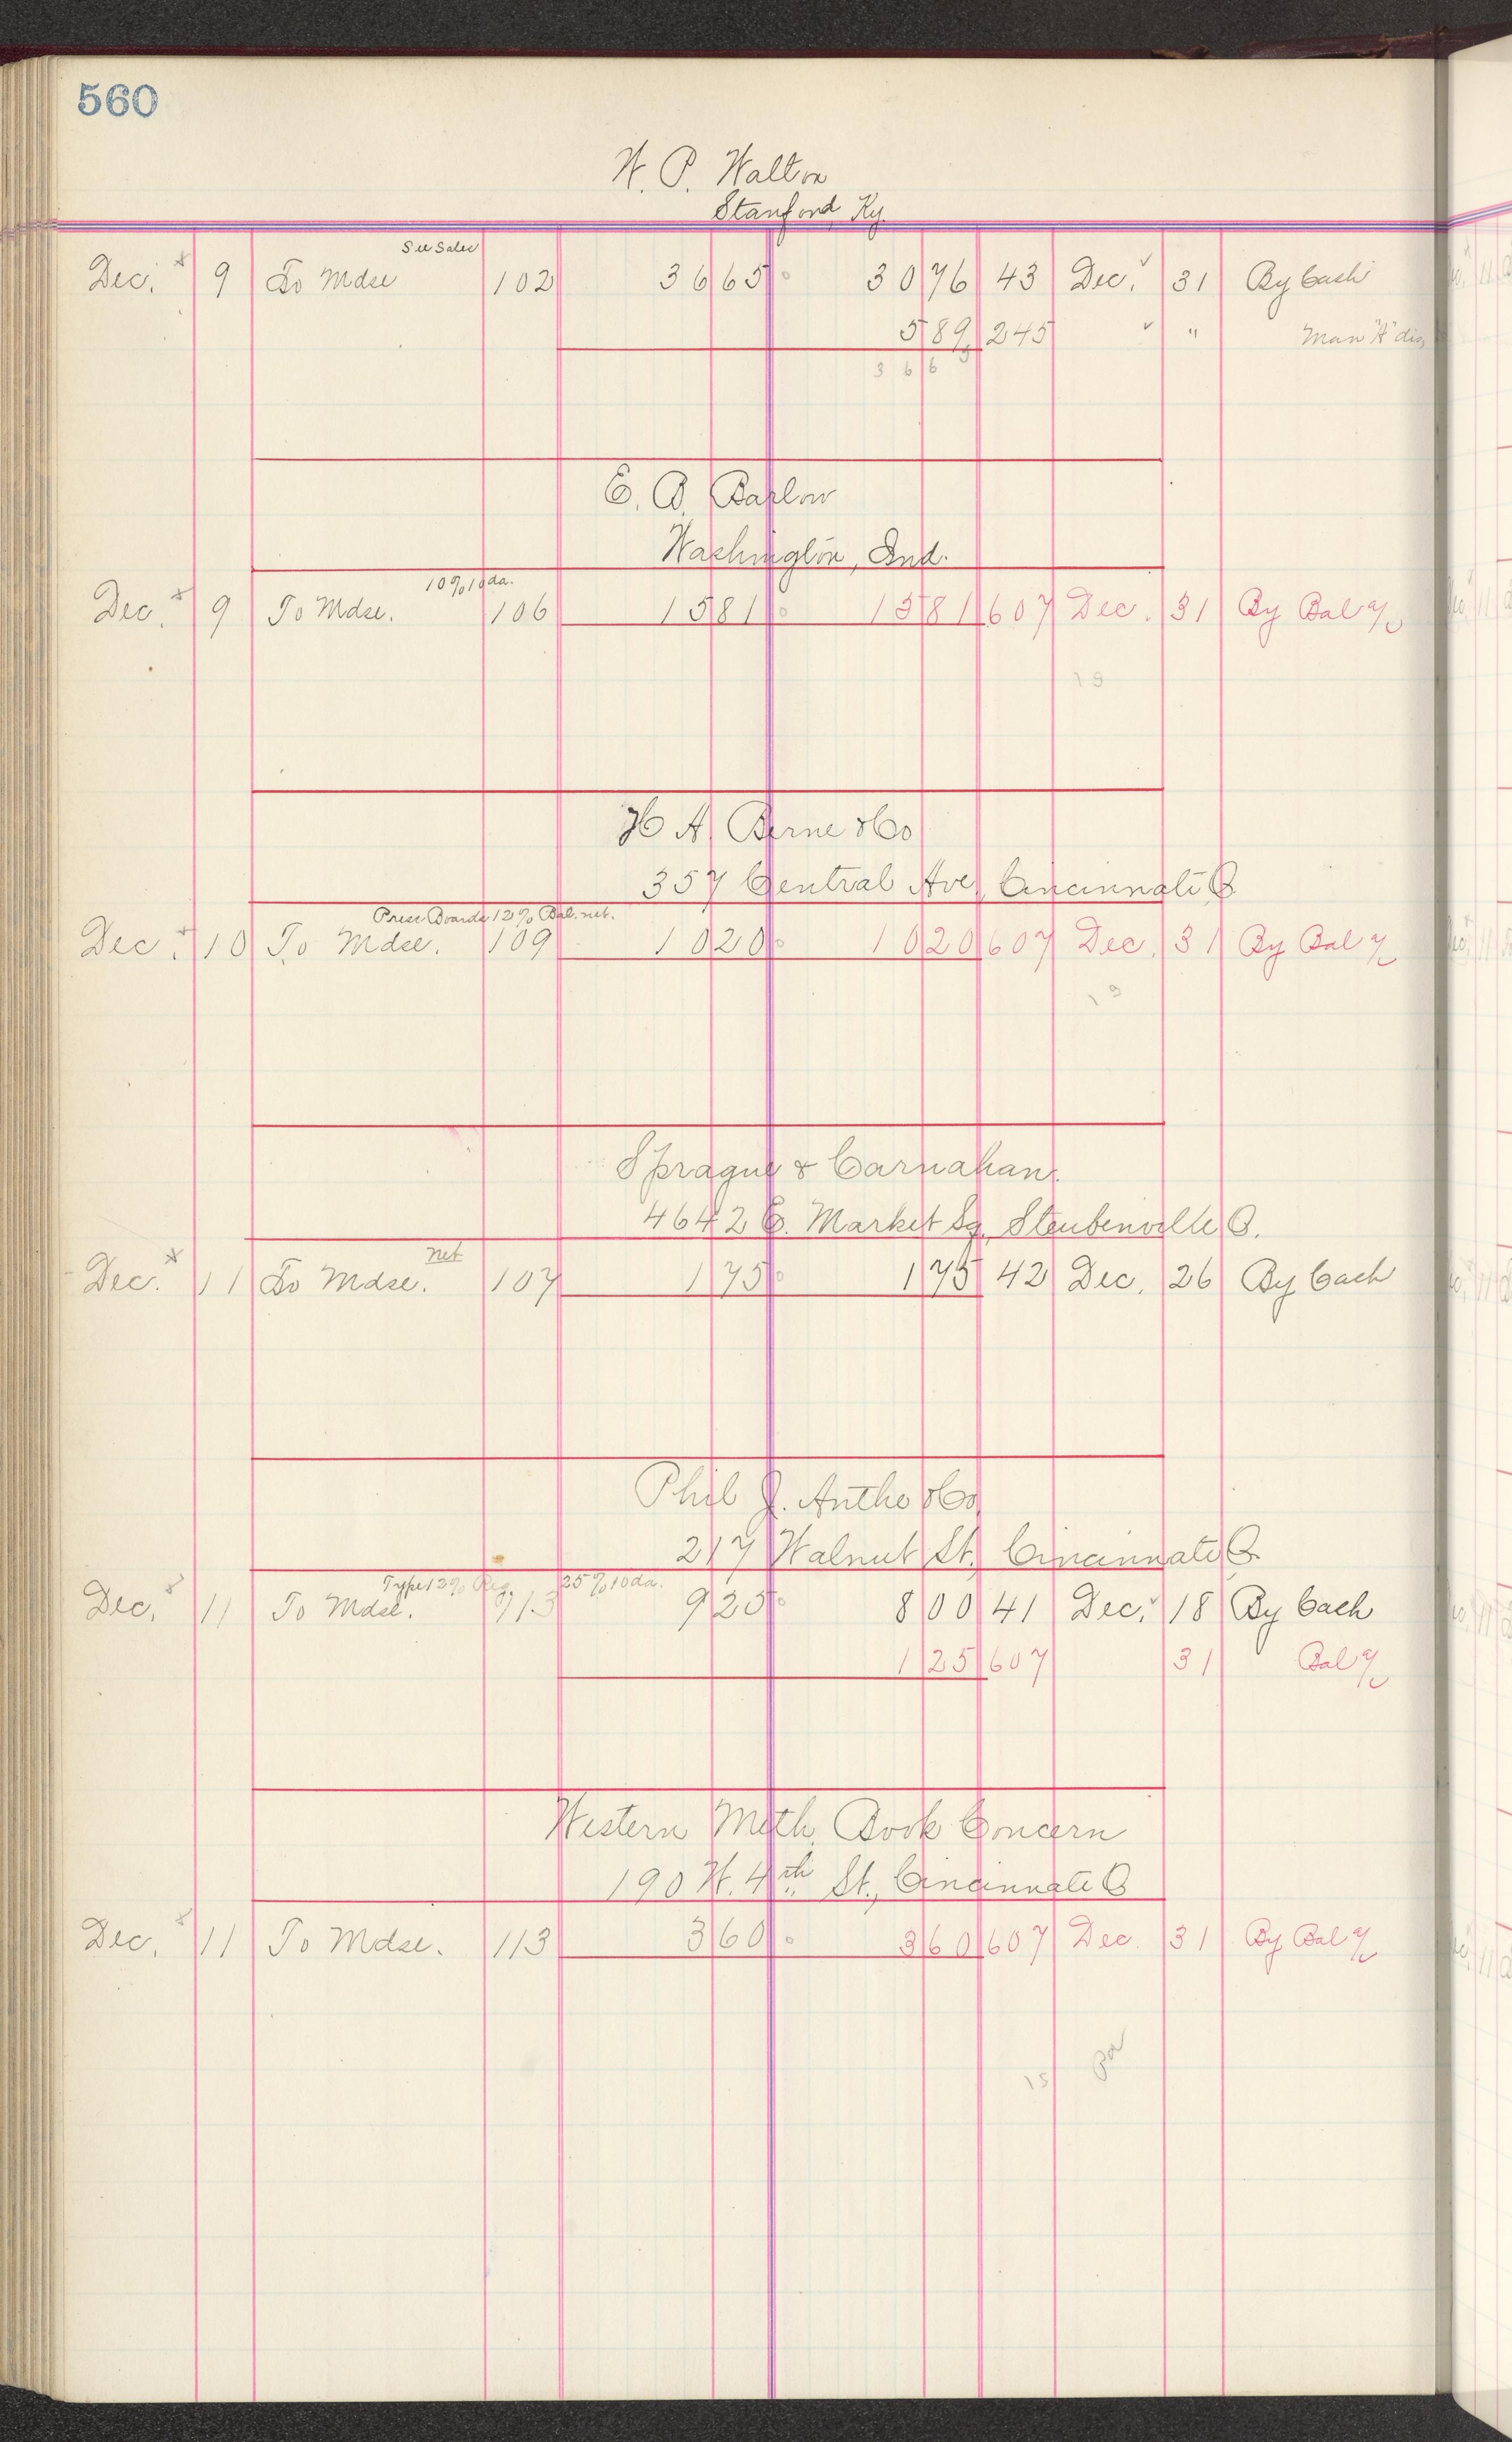 560
W. P. Walton
Stanford Ky.
See Sales
Dec. 9 To Mdse 102 36 65 30 76 43 Dec. 31 By Cash
5 89 245 " Man "A" dis
3 6 6 5
E. B. Barlow
Washington, Ind.
10% 10 da.
Dec. 9 To Mdse. 106 15 81 15 81 607 Dec. 31 By Bal a/c
19
H A Berne & Co
357 Central Ave, Cincinnati O
Press Boards 12% Bal. net.
Dec. 10 To Mdse. 109 10 20 10 20 607 Dec. 31 By Bal a/c
19
Sprague & Carnahan.
4642 E. Market Sq. Steubenville O.
net
Dec. 11 To Mdse. 107 1 75 1 75 42 Dec. 26 By Cash
Phil J. Anthe & Co
217 Walnut St. Cincinnati O.
Type 12% Reg. 25% 10 da.
Dec. 11 To Mdse. 113 9 25 8 00 41 Dec. 18 By Cash
1 25 607 31 Bal a/c
Western Meth. Book Concern
190 W. 4th St., Cincinnati O
Dec. 11 To Mdse. 113 3 60 3 60 607 Dec 31 By Bal a/c
15